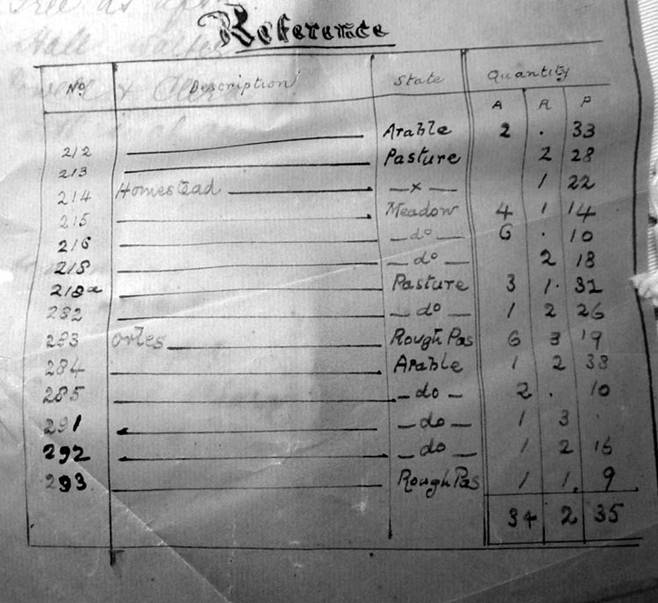 Reference
No Description State Quantity
A R P
212 Arable 2 . 33
213 Pasture 2 28
214 Homestead — x — 1 22
215 Meadow 4 1 14
216 — do — 6 . 10
218 — do — 2 18
218a Pasture 3 1 . 32
282 — do — 1 2 26
283 Rough Pas 6 3 19
284 Arable 1 2 38
285 — do — 2 . 10
291 — do — 1 3 .
292 — do — 1 2 16
293 Rough Pas 1 1 . 9
34 2 35